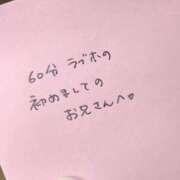 60分 ラブホの
初めましての
お兄さんへ♡